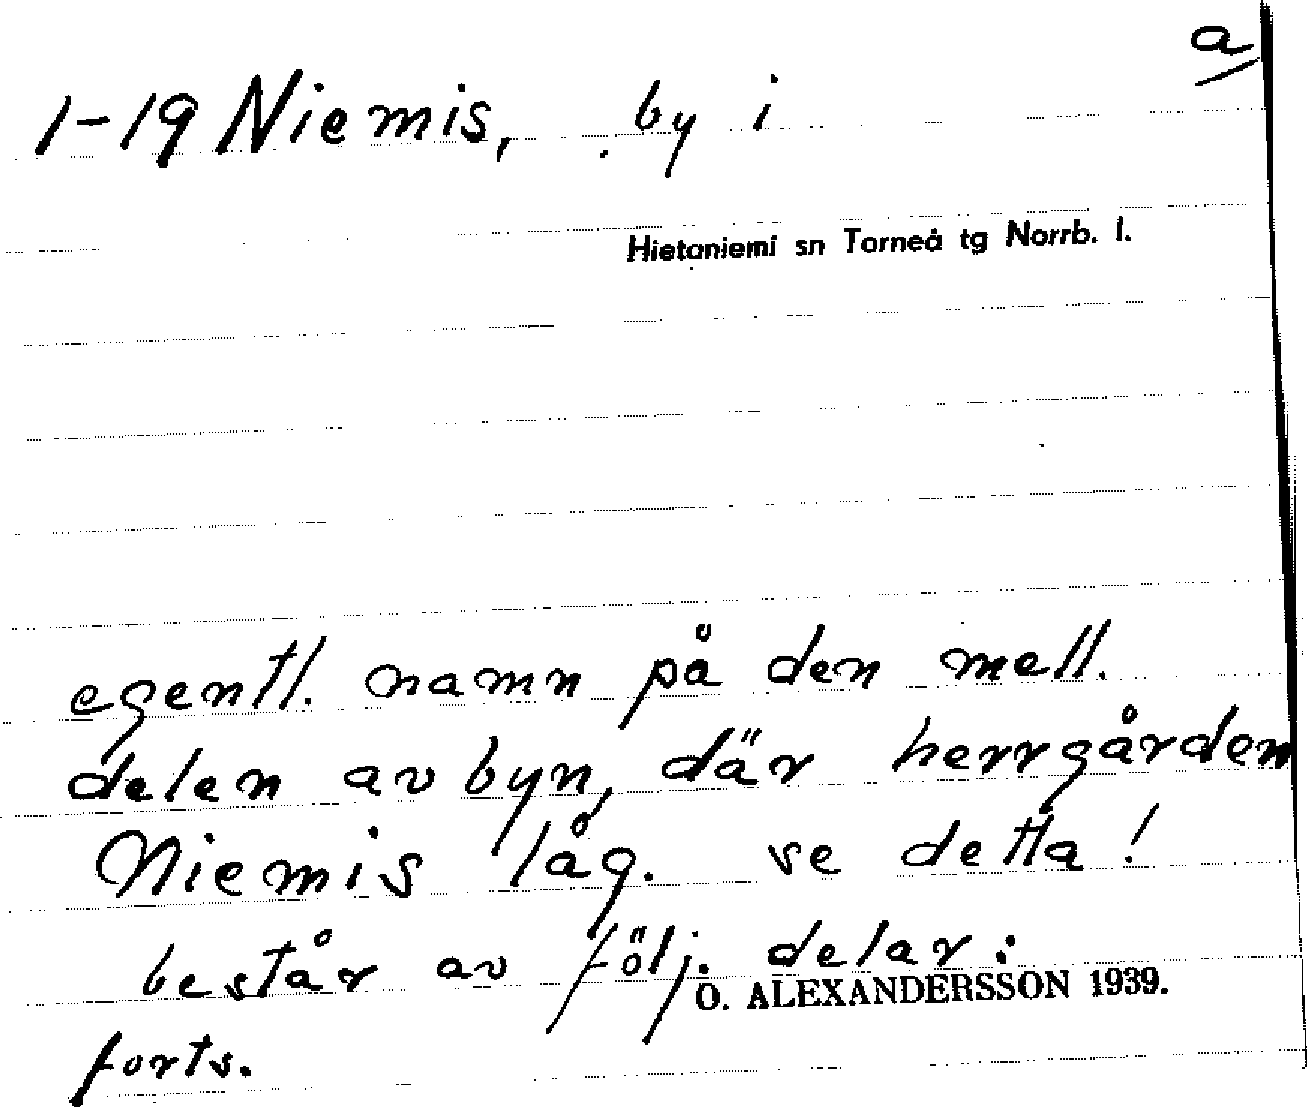 a
1-19 Niemis, by i
Hietaniemi sn Torneå tg Norrb. l.
egentl. namn på den mell.
delen av byn, där herrgården
Niemis låg. se detta!
består av följ. delar:
O. ALEXANDERSSON 1939.
forts.